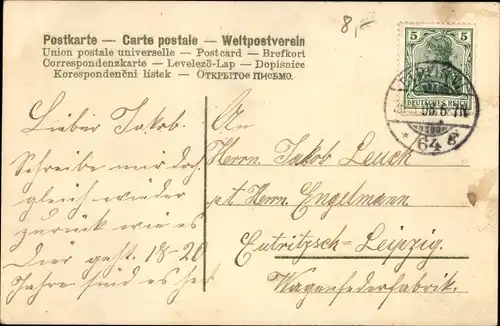 8,-
Postkarte — Carte postale — Weltpostverein
Union postale universelle — Postcard — Brefkort
Correspondenzkarte — Levelező-Lap — Dopisnice
Korespondenční lístek — ОТКРЫТОЕ ПИСЬМО.
5 5
DEUTSCHES REICH
* 64 *
Lieber Jakob.
Schreibe mir doch
gleich wieder
zurück wie es
Dir geht. 18-20
Jahre sind es her
An
Herrn Jakob Leuck
pt Herrn Engelmann
Eutritzsch-Leipzig.
Wagenfederfabrik.